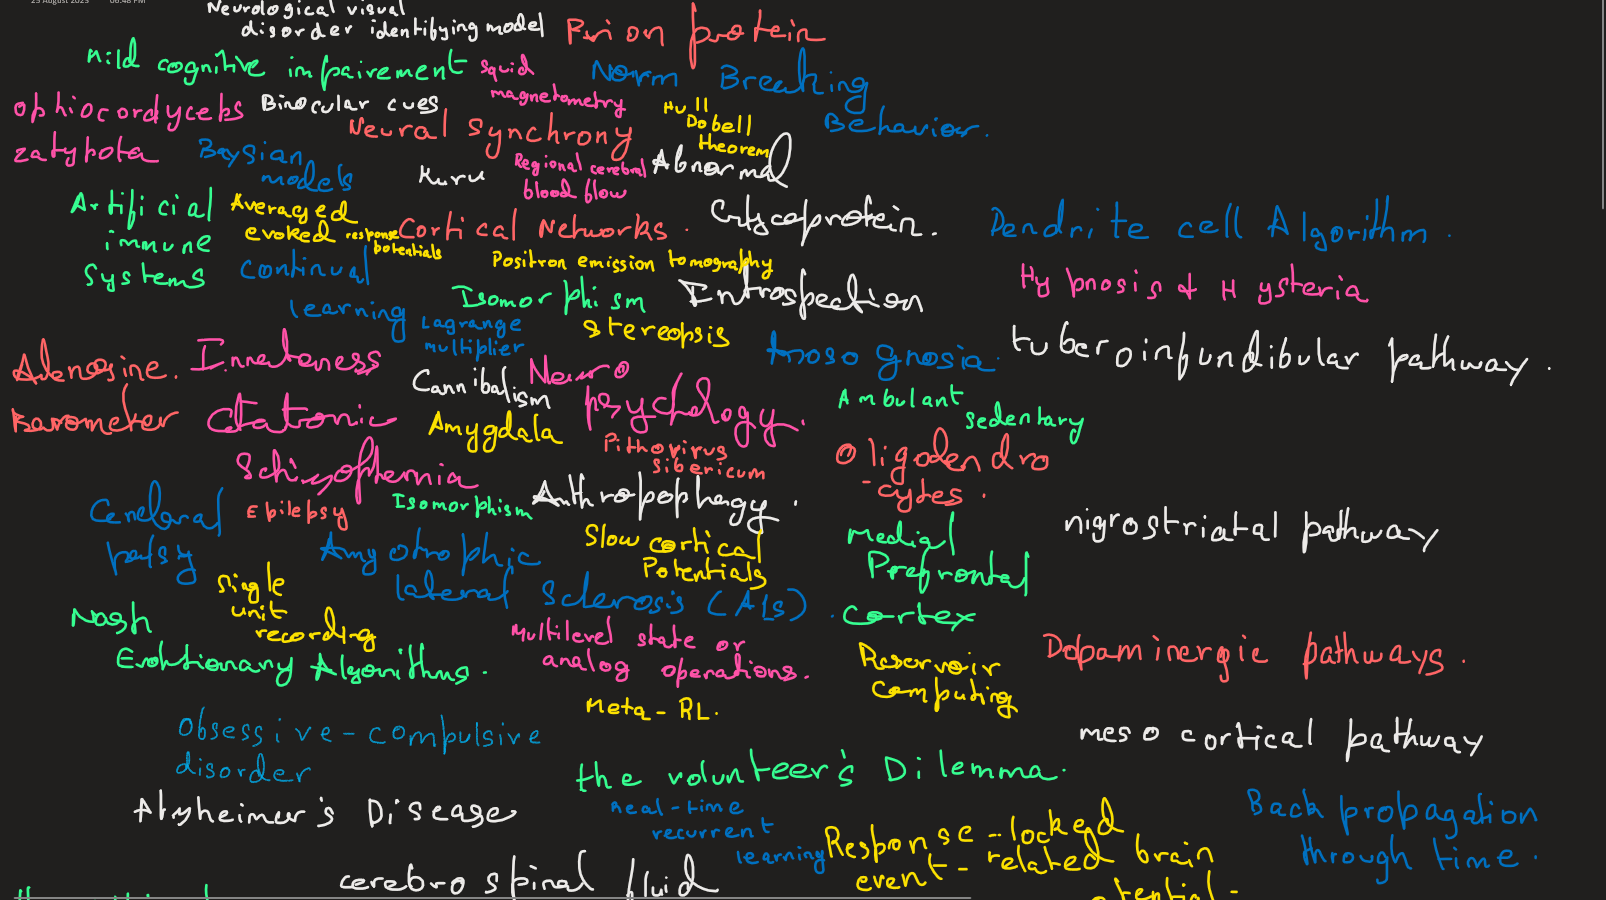 29 August 2025 06:48 PM
Neurological visual
disorder identifying model
Prion protein
Mild cognitive impairement
squid
magnetometry
Norm Breaking
Behavior.
ophiocordyceps
zatypota
Binocular cues
Neural synchrony
Hull
Dobell
theorem
Baysian
models
Kuru
Regional cerebral
blood flow
Abnormal
Glycoprotein.
Artificial
immune
systems
Averaged
evoked response
potentials
Cortical Networks.
Dendrite cell Algorithm.
Positron emission tomography
Hypnosis & Hysteria
continual
learning
Isomorphism
Introspection
Lagrange
multiplier
stereopsis
Anosognosia.
tuberoinfundibular pathway.
Adenosine.
Barometer
Innateness
Cannibalism
Neuro
psychology.
Ambulant
sedentary
Ctatonic
Schizophernia
Amygdala
Pithovirus
sibericum
Oligodendro
-cytes.
Cerebral
palsy
Epilepsy
Isomorphism
Anthropophagy.
nigrostriatal pathway
Amyotrophic
lateral Sclerosis (ALS).
Slow cortical
Potentials
Medial
Prefrontal
Cortex
single
unit
recording
Nash
Evolutionary Algorithms.
Multilevel state or
analog operations.
Reservoir
computing
Dopaminergic pathways.
Meta-RL.
Obsessive-compulsive
disorder
mesocortical pathway
the volunteer's Dilemma.
Alzheimer's Disease
Real-time
recurrent
learning
Response-locked
event-related brain
Back propagation
through time.
cerebrospinal fluid